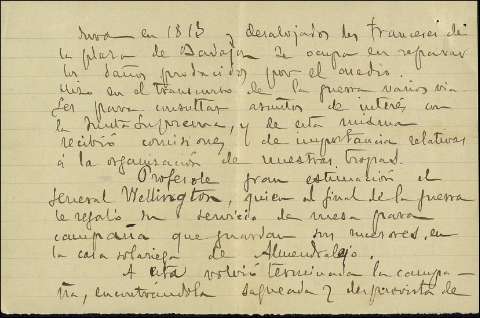 en 1813 y desalojados los franceses de
la plaza de Badajoz se ocupa en reparar
los daños producidos por el asedio.
Hizo en el transcurso de la guerra varios via-
jes para consultar asuntos de interés con
la Junta Suprema, y de esta misma
recibió comisiones de importancia relativas
á la organización de nuestras tropas.
Profesole gran estimación el
General Wellington, quien al final de la guerra
le regaló un servicio de mesa para
campaña que guardan sus mayores, en
la casa solariega de Almendralejo.
A esta volvió terminada la campa-
ña, encontrándola saqueada y desprovista de